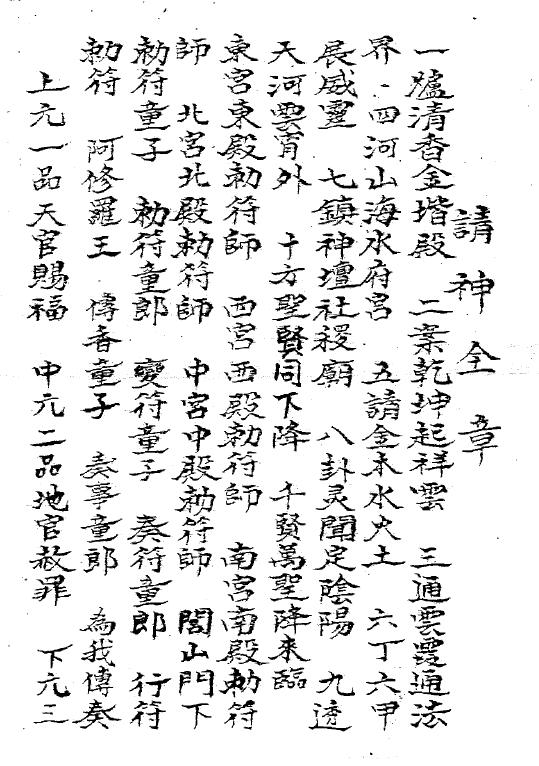 請神全章
一爐清香金堦殿　二案乾坤起祥雲　三通雲霞通法
界．四河山海水府宮　五請金木水火土　六丁六甲
展威靈　七鎮神壇社稷廟　八卦灵聞定陰陽　九透
天河雲宵外　十方聖賢同下降　千賢萬聖降來臨
東宮東殿勅符師　西宮西殿勅符師　南宮南殿勅符
師　北宮北殿勅符師　中宮中殿勅符師　閭山門下
勅符童子　勅符童郎　變符童子　奏符童郎　行符
勅符　阿修羅王　傳香童子　奏事童郎　為我傳奏
上元一品天官賜福　中元二品地官赦罪　下元三